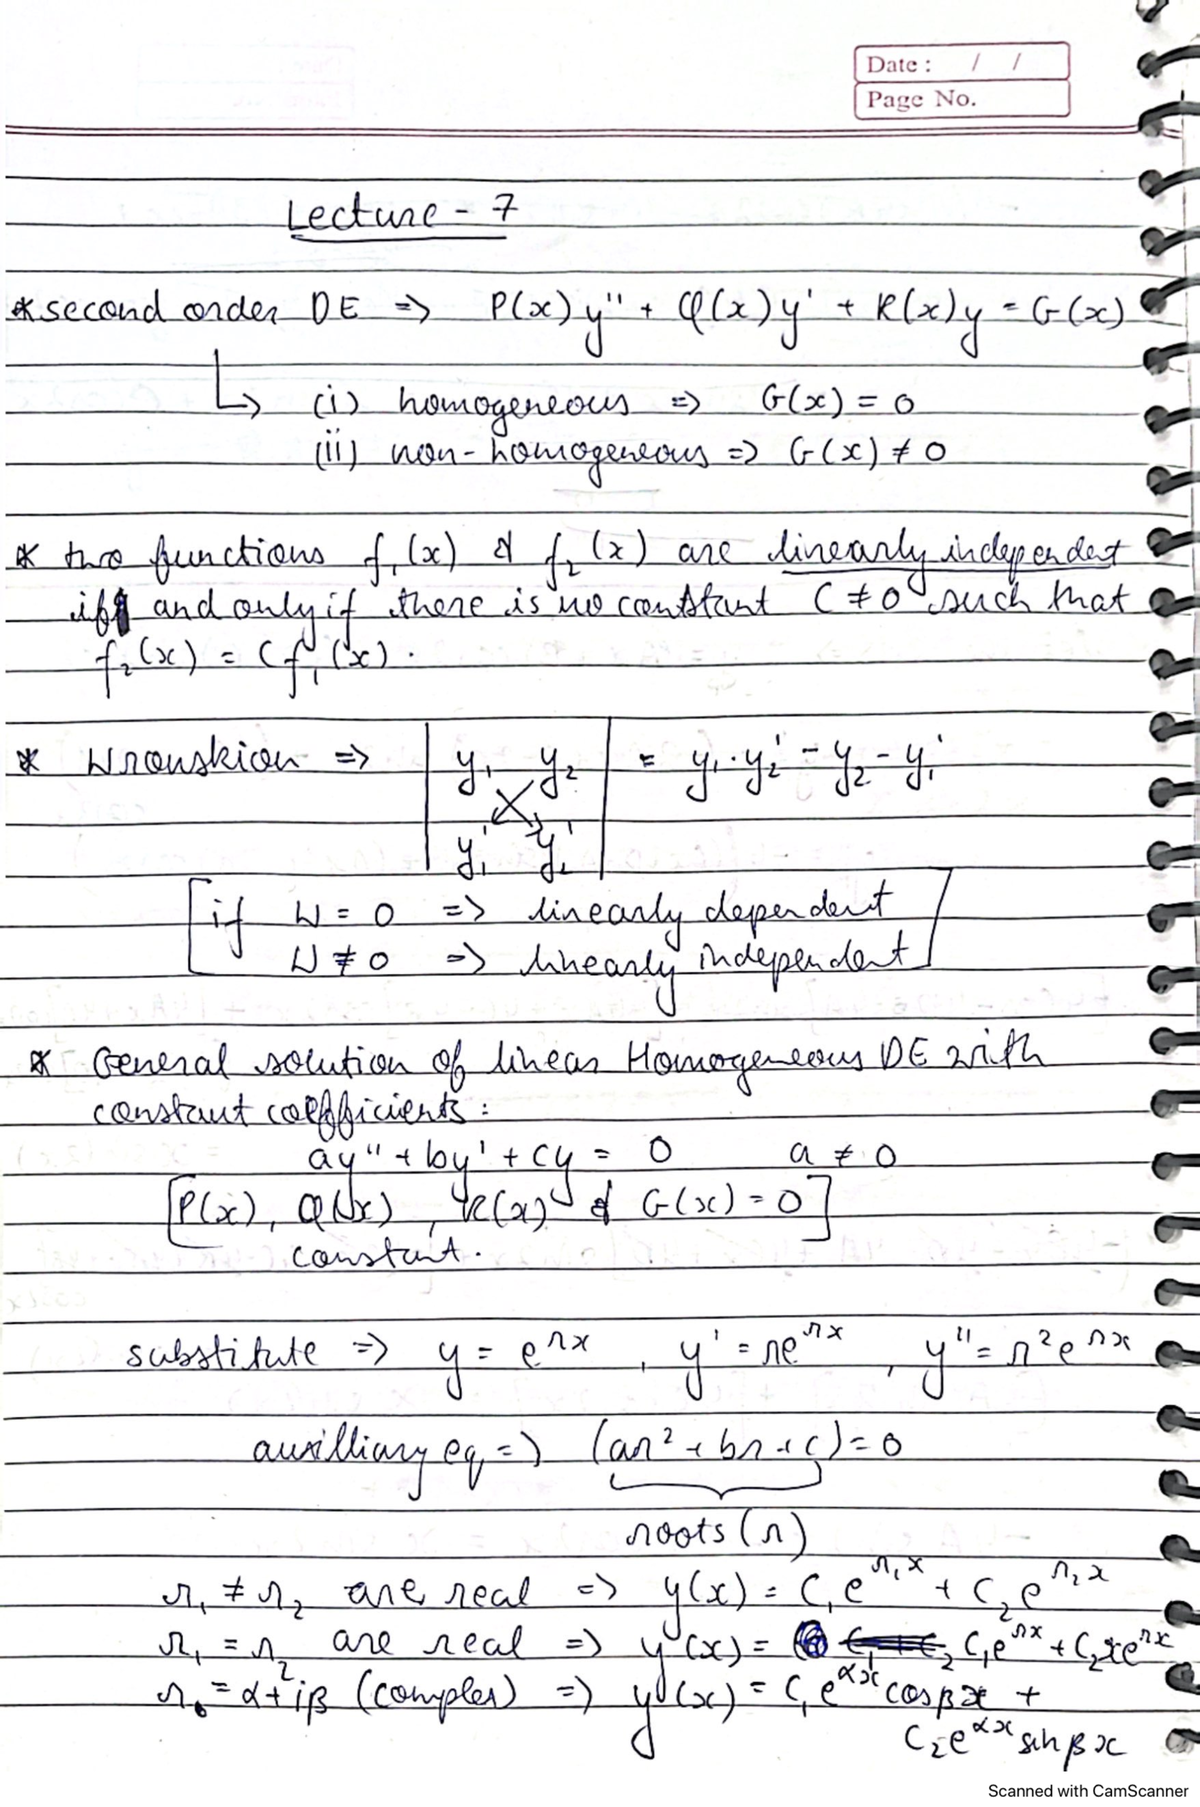 Date : / /
Page No.
Lecture - 7
* second order DE => P(x)y'' + Q(x)y' + R(x)y = G(x)
(i) homogeneous => G(x) = 0
(ii) non-homogeneous => G(x) ≠ 0
* two functions f₁(x) & f₂(x) are linearly independent
if and only if there is no constant C ≠ 0 such that
f₂(x) = C f₁(x).
* Wronskion => | y₁ y₂ | = y₁·y₂' - y₂ - y₁'
| y₁' y₂' |
[if W = 0 => linearly dependent
W ≠ 0 => linearly independent]
* General solution of linear Homogeneous DE with
constant coefficients :
ay'' + by' + cy = 0 a ≠ 0
[P(x), Q(x), R(x) & G(x) = 0]
constant.
substitute => y = e^rx , y' = re^rx , y'' = r²e^rx
auxilliary eq => (ar² + br + c) = 0
roots (r)
r₁ ≠ r₂ are real => y(x) = C₁e^r₁x + C₂e^r₂x
r₁ = r₂ are real => y(x) = C₁e^rx + C₂xe^rx
r = α + iβ (complex) => y(x) = C₁e^αx cosβx +
C₂e^αx sinβx
Scanned with CamScanner